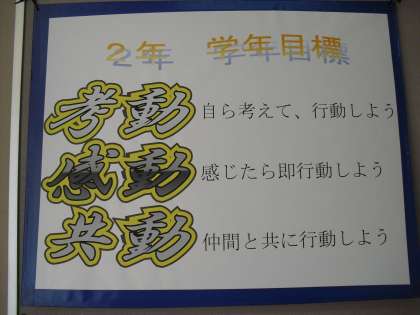 2年 学年目標
考動 自ら考えて、行動しよう
感動 感じたら即行動しよう
共動 仲間と共に行動しよう